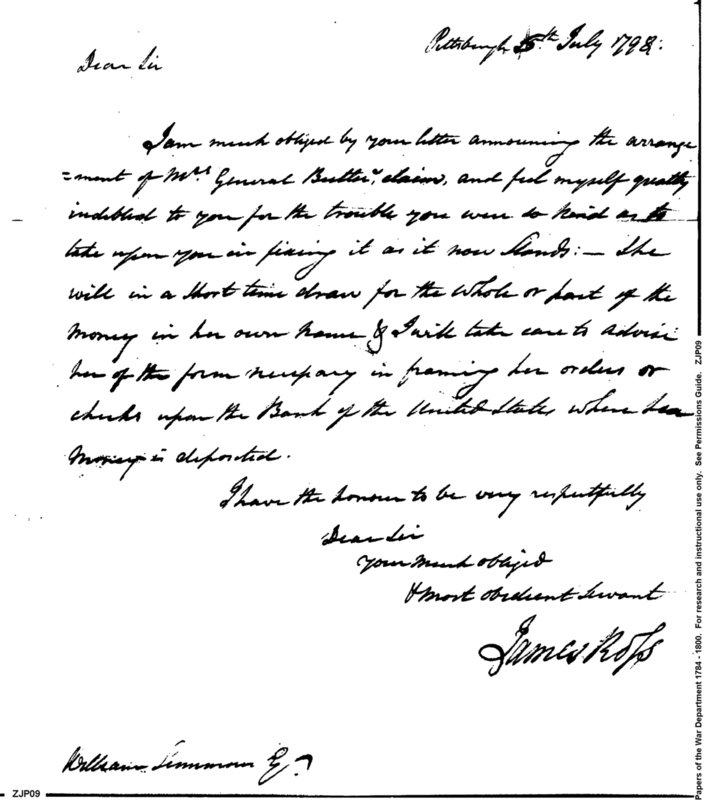 Pittsburgh 25th July 1798.
Dear Sir
I am much obliged by your letter announcing the arrange
=ment of Mrs General Butlers claim, and feel myself greatly
indebted to you for the trouble you were so kind as to
take upon you in fixing it as it now stands: — She
will in a short time draw for the whole or part of the
money in her own name & I will take care to advise
her of the form necessary in framing her orders or
checks upon the Bank of the United States where her
money is deposited.
I have the honour to be very respectfully
Dear Sir
your much obliged
& most obedient servant
James Ross
William Simmons Esq
ZJP09
Papers of the War Department 1784 - 1800. For research and instructional use only. See Permissions Guide. ZJP09